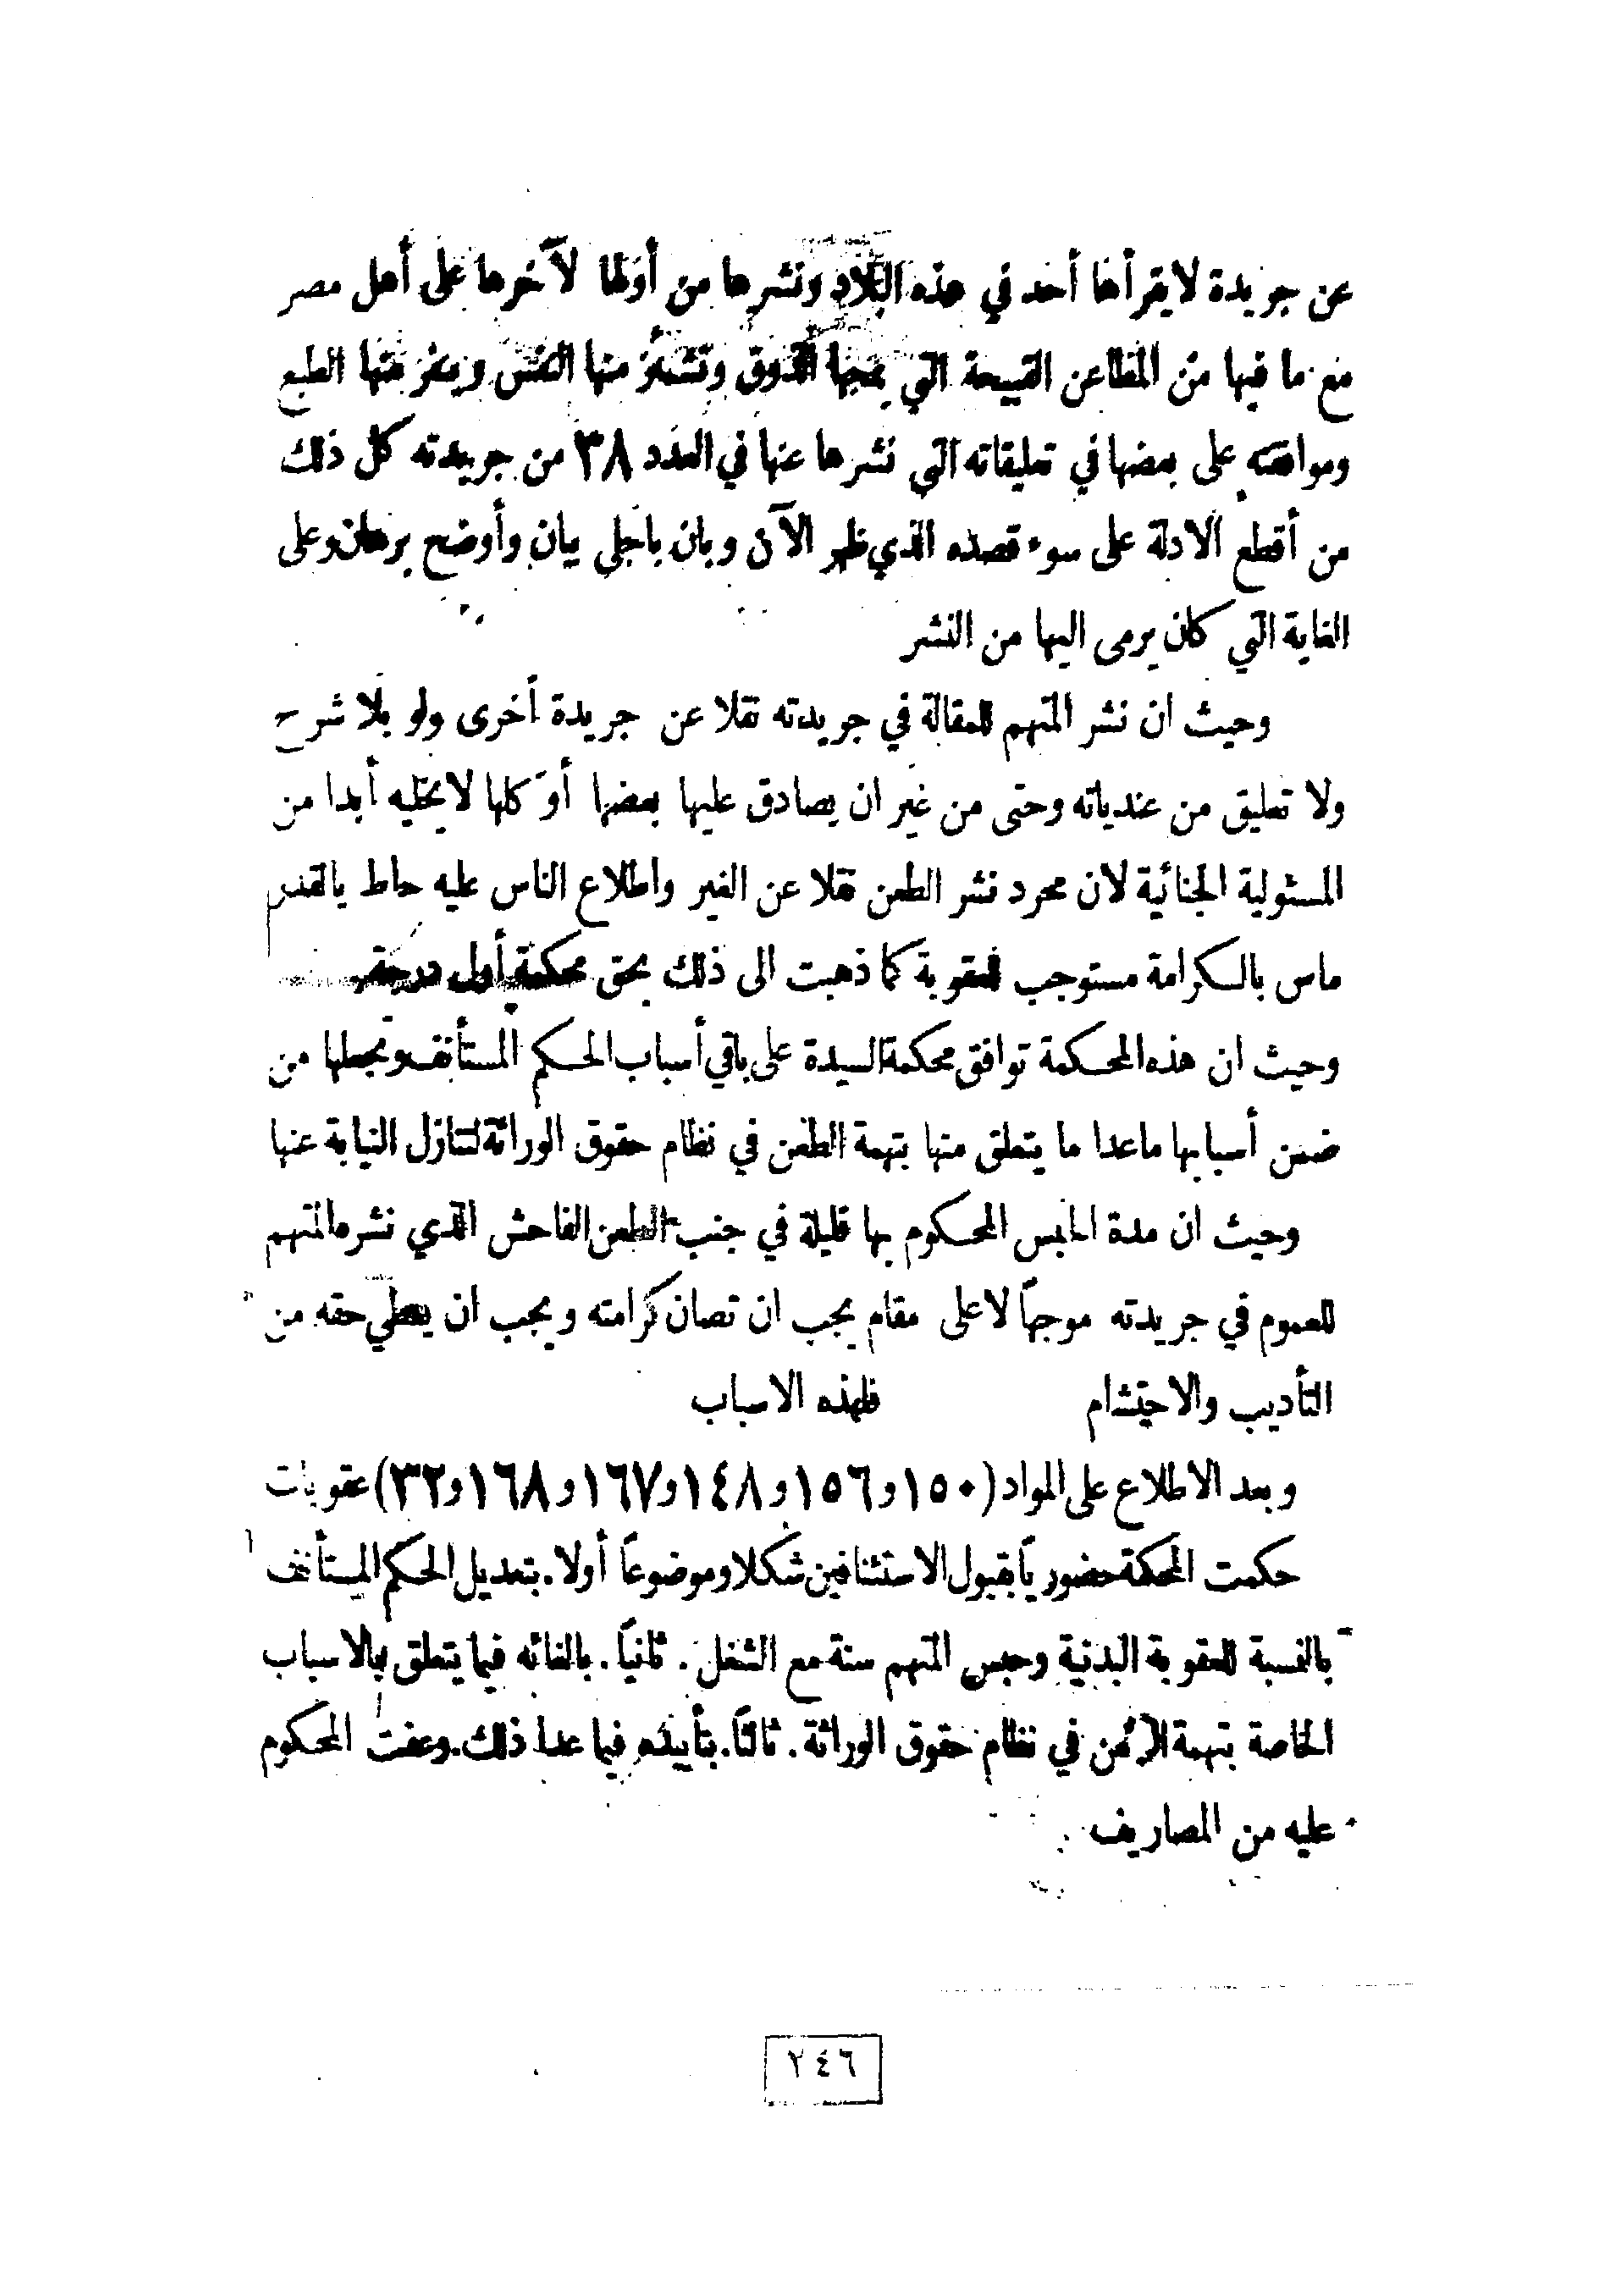 عن جريدة لا يقرأها أحد في هذه البلاد ونشرها من أولها لآخرها على أهل مصر
مع ما فيها من المطاعن القبيحة التي يمجها الذوق وتشمئز منها النفس وينفر منها الطبع
وموافقته على بعضها في تعليقاته التي نشرها عنها في العدد ٣٨ من جريدته كل ذلك
من أقطع الادلة على سوء قصده الذي ظهر الآن وبان باجلى بيان وأوضح برهان وعلى
الغاية التي كان يرمى اليها من النشر
وحيث ان نشر المتهم للمقالة في جريدته نقلا عن جريدة أخرى ولو بلا شرح
ولا تعليق من عندياته وحتى من غير ان يصادق عليها بعضها أو كلها لا يخليه أبدا من
المسئولية الجنائية لان مجرد نشر الطعن نقلا عن الغير واطلاع الناس عليه حاط بالقدر
ماس بالكرامة مستوجب للعقوبة كما ذهبت الى ذلك بحق محكمة أول درجة
وحيث ان هذه المحكمة توافق محكمة السيدة على باقي أسباب الحكم المستأنف وتجعلها من
ضمن أسبابها ماعدا ما يتعلق منها بتهمة الطعن في نظام حقوق الوراثة لتنازل النيابة عنها
وحيث ان مدة الحبس المحكوم بها قليلة في جنب الطعن الفاحش الذي نشره المتهم
للعموم في جريدته موجهاً لاعلى مقام يجب ان تصان كرامته ويجب ان يعطي حقه من
التأديب والاحتشام فلهذه الاسباب
وبعد الاطلاع على المواد (١٥٠ و١٥٦ و١٤٨ و١٦٧ و١٦٨ و٣٢) عقوبات
حكمت المحكمة حضورياً بقبول الاستئنافين شكلا وموضوعاً أولا. بتعديل الحكم المستأنف
بالنسبة للعقوبة البدنية وحبس المتهم سنة مع الشغل. ثانياً. بالغائه فيما يتعلق بالاسباب
الخاصة بتهمة الطعن في نظام حقوق الوراثة. ثالثاً. بتأييده فيما عدا ذلك. وعفت المحكوم
عليه من المصاريف
٢٤٦